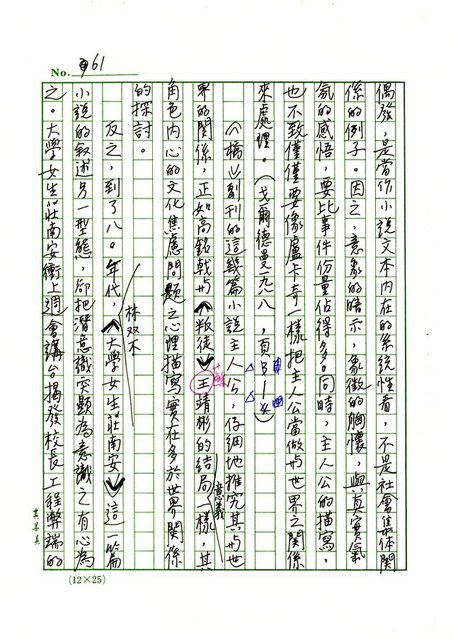 No. 061
偶發，是當作小說文本內在的系統性看，不是社會集体關
係的例子。因之，意象的暗示，象徵的胸懷，與真實氣
氛的感悟，要比事件份量佔得多。同時，主人公的描寫，
也不致僅僅要像盧卡奇一樣把主人公當做與世界之關係
來處理。（戈爾德曼一九八，頁
《橋》副刊的這幾篇小說主人公，仔細地推究其與世
界的關係，正如高銘戟與《叛徒》王靖彬的結局意義一樣，其
角色內心的文化焦慮問題之心理描寫實在多於世界關係
的探討。
反之，到了八○年代，林双木《大學女生莊南安》這一篇
小說的敘述另一型態，卻把潛意識突顯為意識之有心為
之。大學女生莊南安衝上週會講台揭發校長工程弊端的
(12×25)